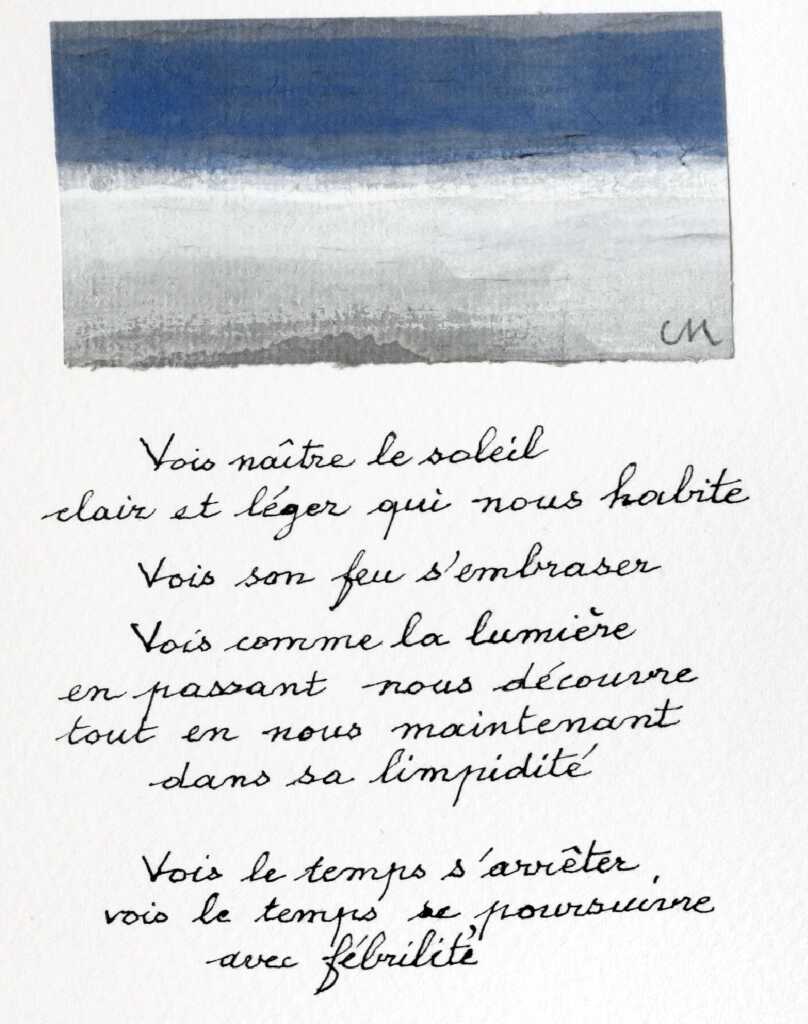 CM
Vois naître le soleil
clair et léger qui nous habite
Vois son feu s'embraser
Vois comme la lumière
en passant nous découvre
tout en nous maintenant
dans sa limpidité
Vois le temps s'arrêter
vois le temps se poursuivre
avec fébrilité